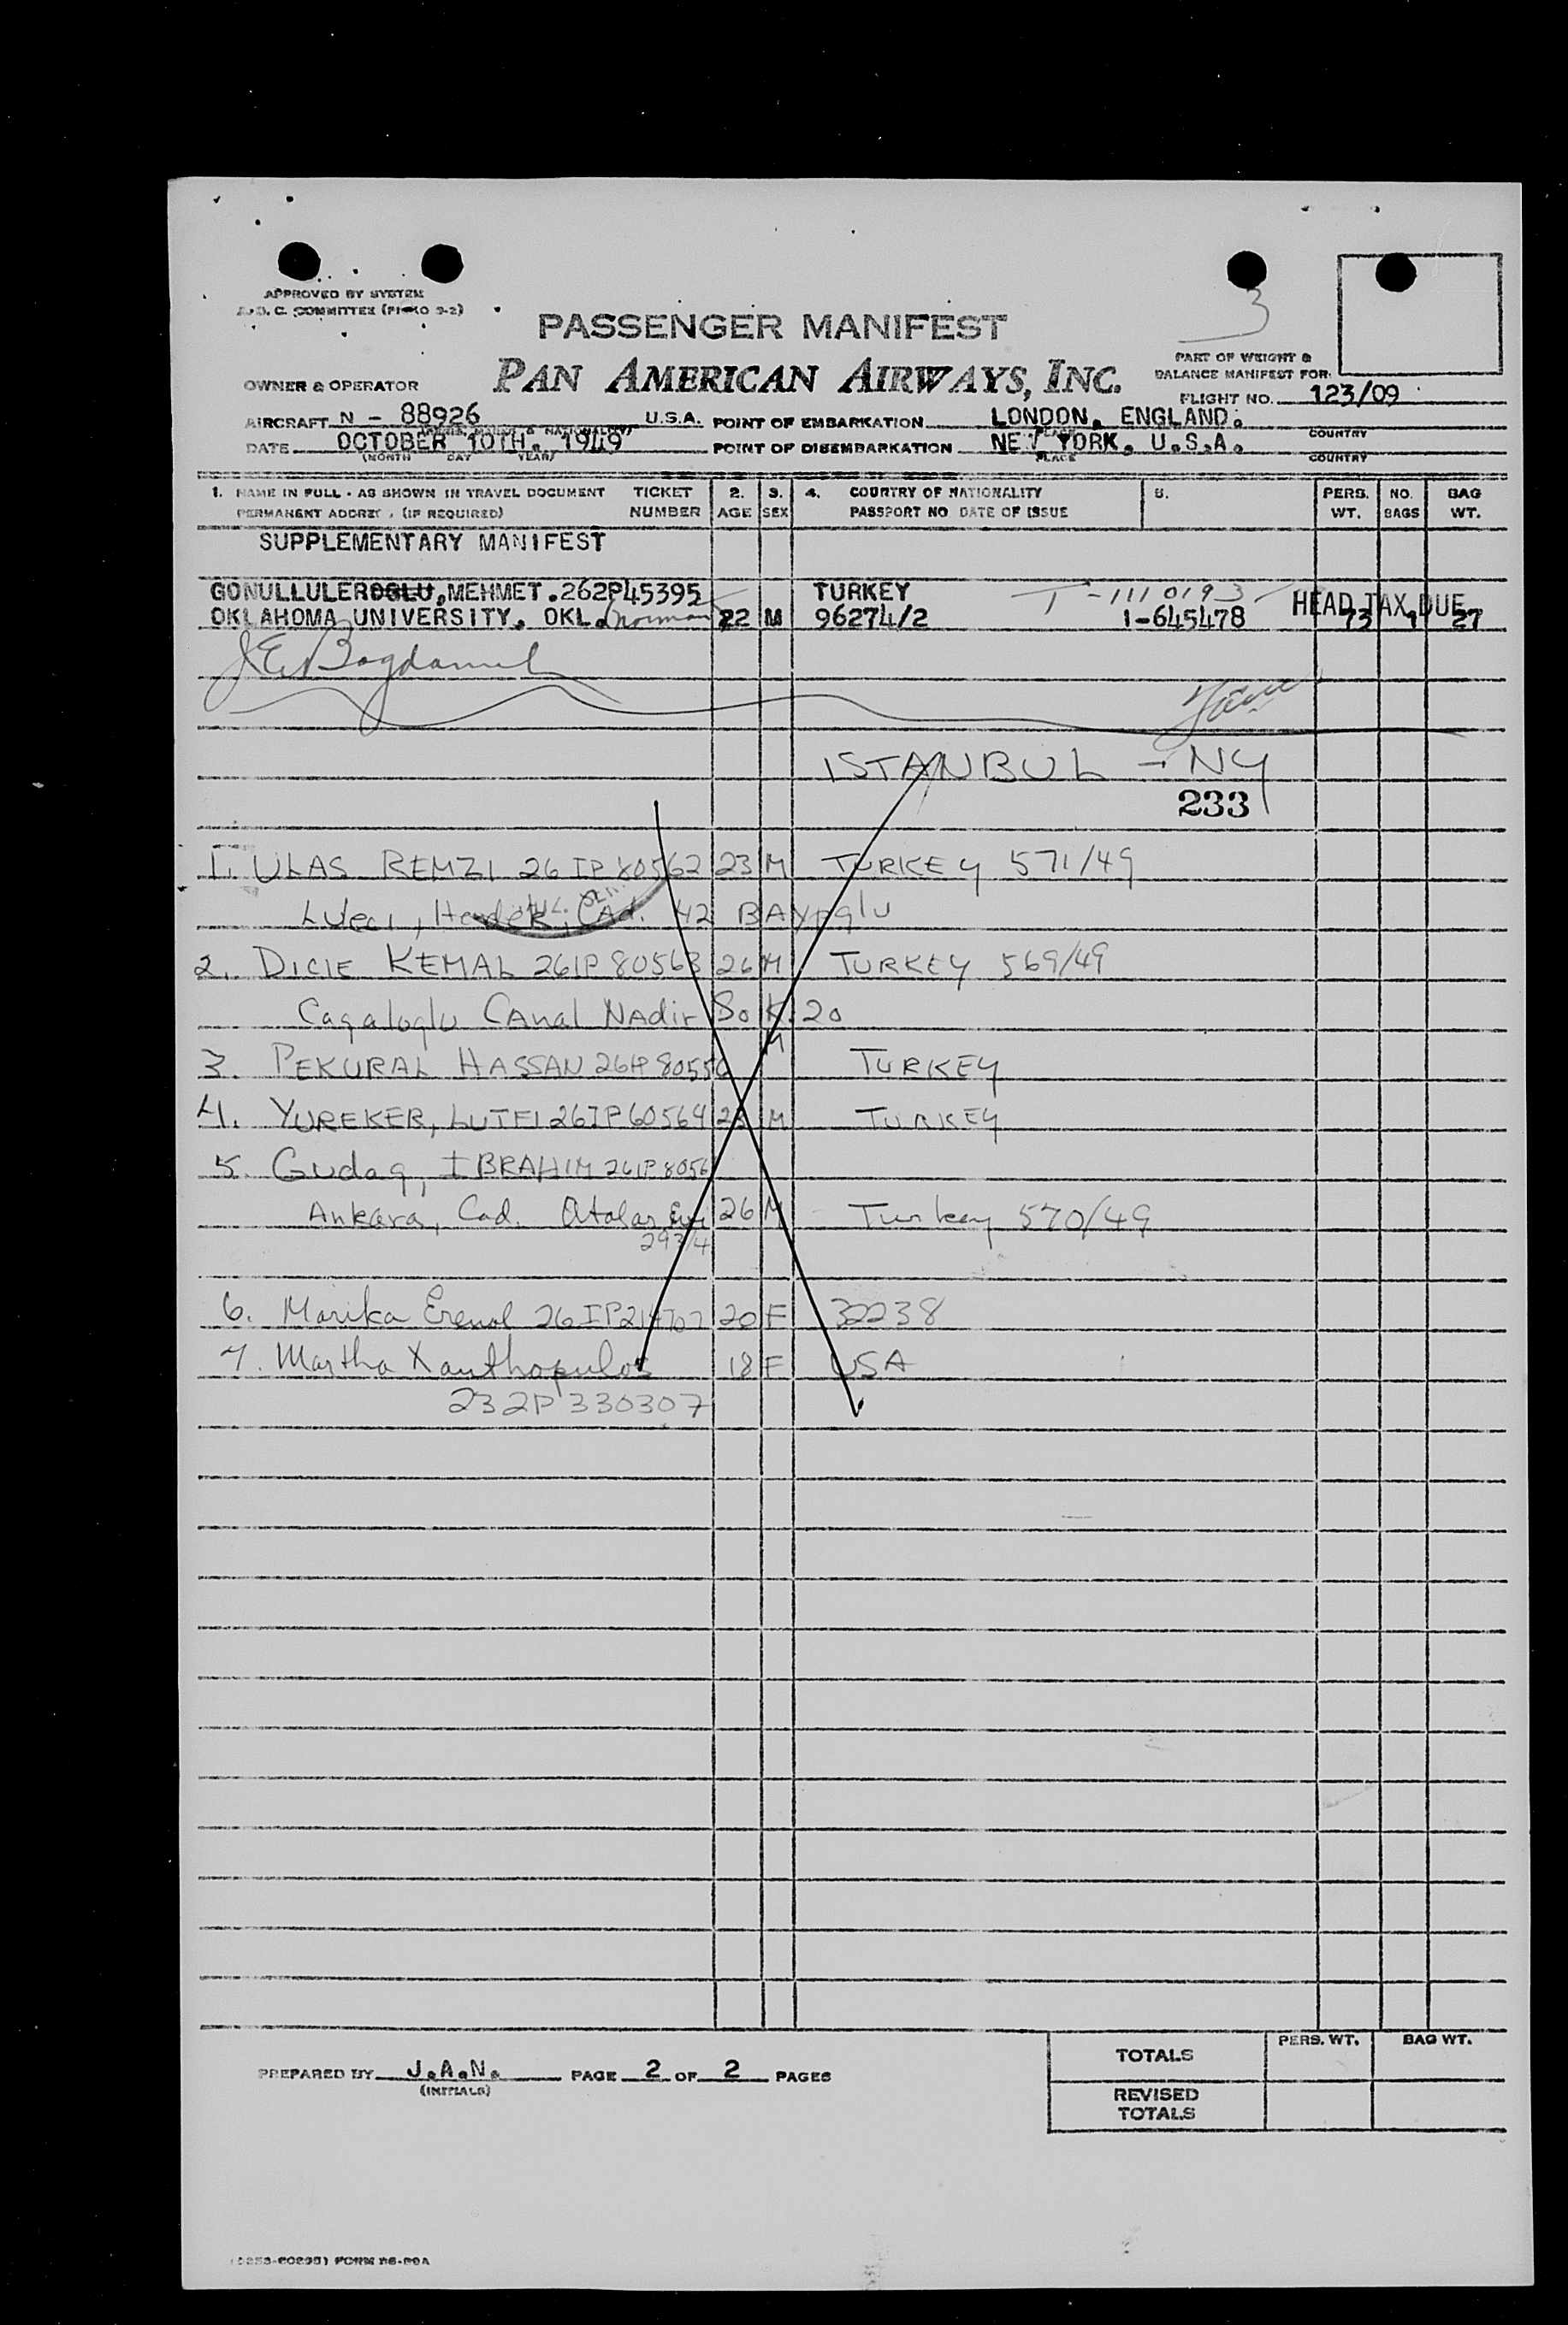 APPROVED BY SYSTEM
COMMITTEE
3
PASSENGER MANIFEST
PAN AMERICAN AIRWAYS, INC.
PART OF WEIGHT &
BALANCE MANIFEST FOR:
OWNER & OPERATOR
FLIGHT NO. 123/09
AIRCRAFT N - 88926 U.S.A. POINT OF EMBARKATION LONDON, ENGLAND.
DATE OCTOBER 10TH. 1949 POINT OF DISEMBARKATION NEW YORK. U.S.A.
(MONTH DAY YEAR) PLACE COUNTRY
1. NAME IN FULL - AS SHOWN IN TRAVEL DOCUMENT TICKET 2. 3. 4. COUNTRY OF NATIONALITY 5. PERS. NO. BAG
PERMANENT ADDRE (IF REQUIRED) NUMBER AGE SEX PASSPORT NO DATE OF ISSUE WT. BAGS WT.
SUPPLEMENTARY MANIFEST
GONULLULEROGLU, MEHMET. 262P45395 TURKEY T-1110193 HEAD TAX DUE
OKLAHOMA UNIVERSITY. OKL. Norman 22 M 96274/2 1-645478 73 1 27
ISTANBUL - NY
233
1. ULAS REMZI 26IP80562 23 M TURKEY 571/49
Luleci, Hendek, CAd. 42 BAYoglu
2. DICIE KEMAL 26IP80563 26 M TURKEY 569/49
Cagaloglu CAnal NAdir So K. 20
3. PEKURAL HASSAN M TURKEY
4. YUREKER, LUTFI 26IP60564 M TURKEY
5. Gudag, IBRAHIM
Ankara, Cad. Atalar 26 M Turkey 570/49
293/4
6. Marika Erenol 20 F 32238
7. Martha Xanthopulos 18 F USA
232P330307
TOTALS PERS. WT. BAG WT.
PREPARED BY J.A.N. PAGE 2 OF 2 PAGES
(INITIALS)
REVISED
TOTALS